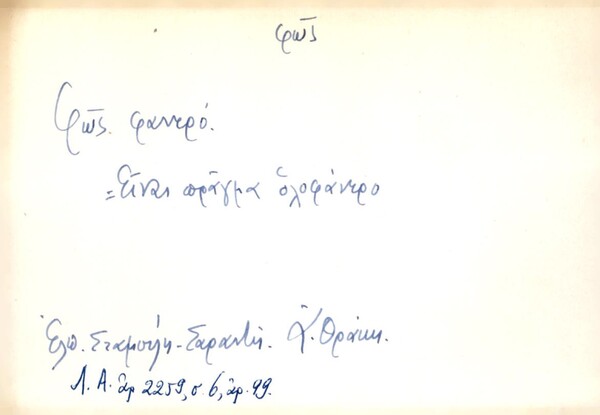 φῶς
Φῶς φαντρό.
= Εἶναι πρᾶγμα ὁλοφάντρο
Ἐλπ. Σταμούλη-Σαραντῆ. Ἀ. Θράκη.
Λ. Α. ἀρ. 2259, σ. 6, ἀρ. 99.